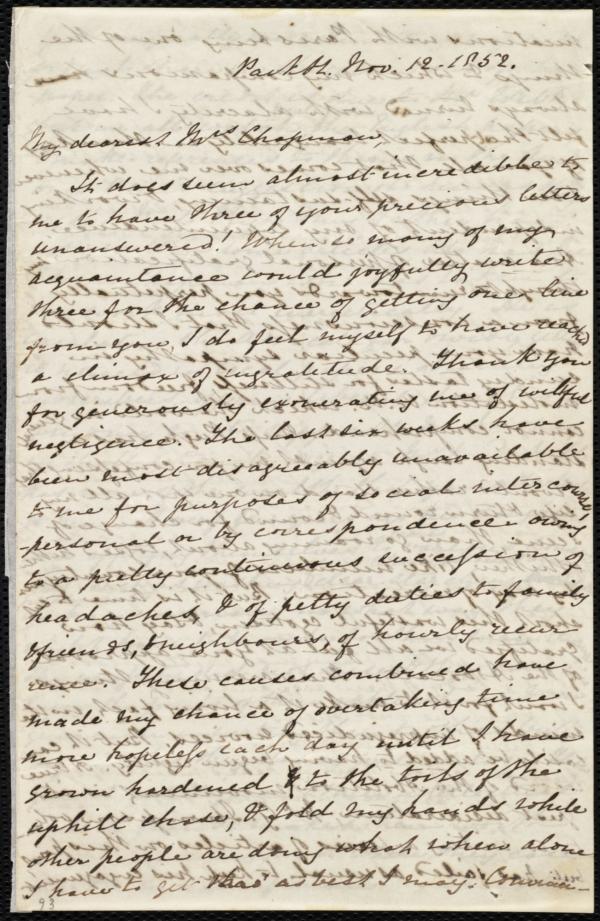 Park St. Nov. 12. 1852.
My dearest Mrs Chapman,
It does seem almost incredible to
me to have three of your precious letters
unanswered! When so many of my
acquaintance would joyfully write
three for the chance of getting one line
from you, I do feel myself to have reached
a climax of ingratitude. Thank you
for generously exonerating me of wilful
negligence. The last six weeks have
been most disagreeably unavailable
to me for purposes of social intercourse,
personal or by correspondence owing
to a pretty continuous succession of
headaches & of petty duties to family
& friends, & neighbours, of hourly recur
rence. These causes combined have
made my chance of overtaking time
more hopeless each day until I have
grown hardened to the toils of the
uphill chase, & fold my hands while
other people are doing what when alone
I have to get thro' as best I may.
93